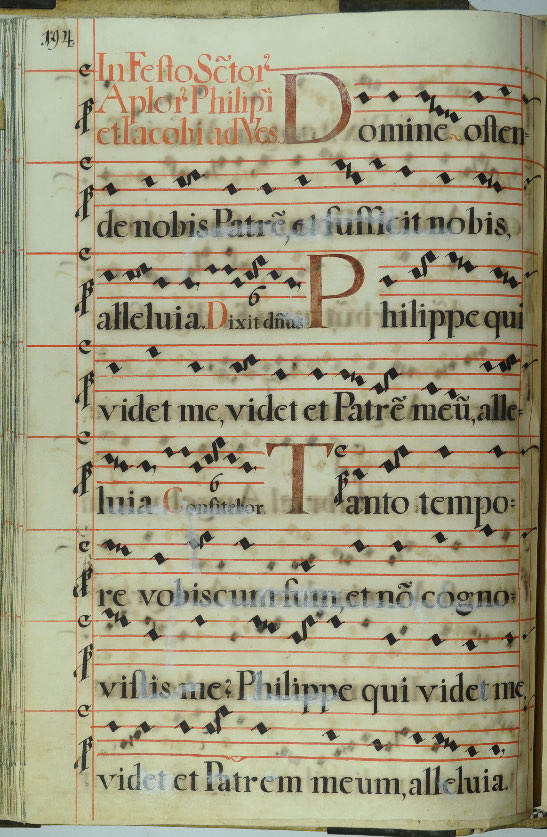 194
In Festo Sc̃tor²
Aplor² Philipĩ
et Iacobi ad Ves
Domine osten-
de nobis Patrẽ, et sufficit nobis,
alleluia. Dixit dñus. Philippe qui
6
videt me, videt et Patrẽ meũ, alle-
luia Confitebor. Tanto tempo:
6
re vobiscum fuin, et nõ cogno:
vistis me? Philippe qui videt me,
videt et Patrem meum, alleluia.